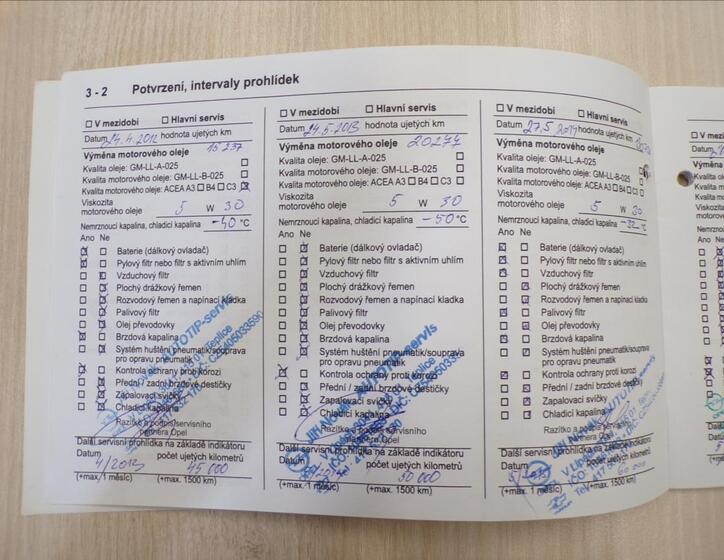 3 - 2 Potvrzení, intervaly prohlídek
V mezidobí Hlavní servis
Datum 24.4.2012 hodnota ujetých km
15 237
Výměna motorového oleje
Kvalita oleje: GM-LL-A-025
Kvalita motorového oleje: GM-LL-B-025
Kvalita motorového oleje: ACEA A3 B4 C3
Viskozita
motorového oleje 5 W 30
Nemrznoucí kapalina, chladicí kapalina -40 °C
Ano Ne
Baterie (dálkový ovladač)
Pylový filtr nebo filtr s aktivním uhlím
Vzduchový filtr
Plochý drážkový řemen
Rozvodový řemen a napínací kladka
Palivový filtr
Olej převodovky
Brzdová kapalina
Systém huštění pneumatik/souprava
pro opravu pneumatik
Kontrola ochrany proti korozi
Přední / zadní brzdové destičky
Zapalovací svíčky
Chladicí kapalina
Razítko a podpis servisního
partnera Opel
Další servisní prohlídka na základě indikátoru
Datum počet ujetých kilometrů
4/2013 45 000
(+max. 1 měsíc) (+max. 1500 km)
V mezidobí Hlavní servis
Datum 24.5.2013 hodnota ujetých km
Výměna motorového oleje 20274
Kvalita oleje: GM-LL-A-025
Kvalita motorového oleje: GM-LL-B-025
Kvalita motorového oleje: ACEA A3 B4 C3
Viskozita
motorového oleje 5 W 30
Nemrznoucí kapalina, chladicí kapalina -50 °C
Ano Ne
Baterie (dálkový ovladač)
Pylový filtr nebo filtr s aktivním uhlím
Vzduchový filtr
Plochý drážkový řemen
Rozvodový řemen a napínací kladka
Palivový filtr
Olej převodovky
Brzdová kapalina
Systém huštění pneumatik/souprava
pro opravu pneumatik
Kontrola ochrany proti korozi
Přední / zadní brzdové destičky
Zapalovací svíčky
Chladicí kapalina
Razítko a podpis servisního
partnera Opel
Další servisní prohlídka na základě indikátoru
Datum počet ujetých kilometrů
50 000
(+max. 1 měsíc) (+max. 1500 km)
V mezidobí Hlavní servis
Datum 27.5 hodnota ujetých km
Výměna motorového oleje
Kvalita oleje: GM-LL-A-025
Kvalita motorového oleje: GM-LL-B-025
Kvalita motorového oleje: ACEA A3 B4 C3
Viskozita
motorového oleje 5 W 30
Nemrznoucí kapalina, chladicí kapalina -32 °C
Ano Ne
Baterie (dálkový ovladač)
Pylový filtr nebo filtr s aktivním uhlím
Vzduchový filtr
Plochý drážkový řemen
Rozvodový řemen a napínací kladka
Palivový filtr
Olej převodovky
Brzdová kapalina
Systém huštění pneumatik/souprava
pro opravu pneumatik
Kontrola ochrany proti korozi
Přední / zadní brzdové destičky
Zapalovací svíčky
Chladicí kapalina
Razítko a podpis servisního
partnera Opel
Další servisní prohlídka na základě indikátoru
Datum počet ujetých kilometrů
(+max. 1 měsíc) (+max. 1500 km)